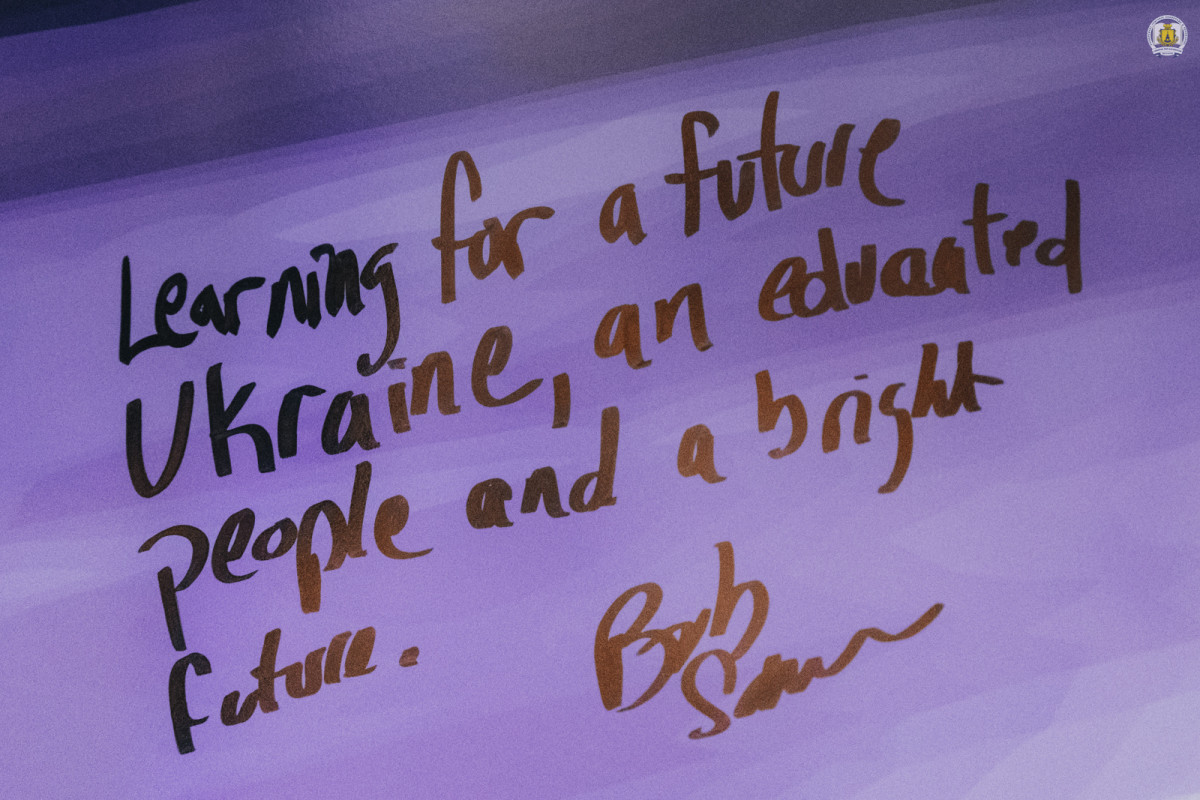 Learning for a future
Ukraine, an educated
people and a bright
future.
Bob